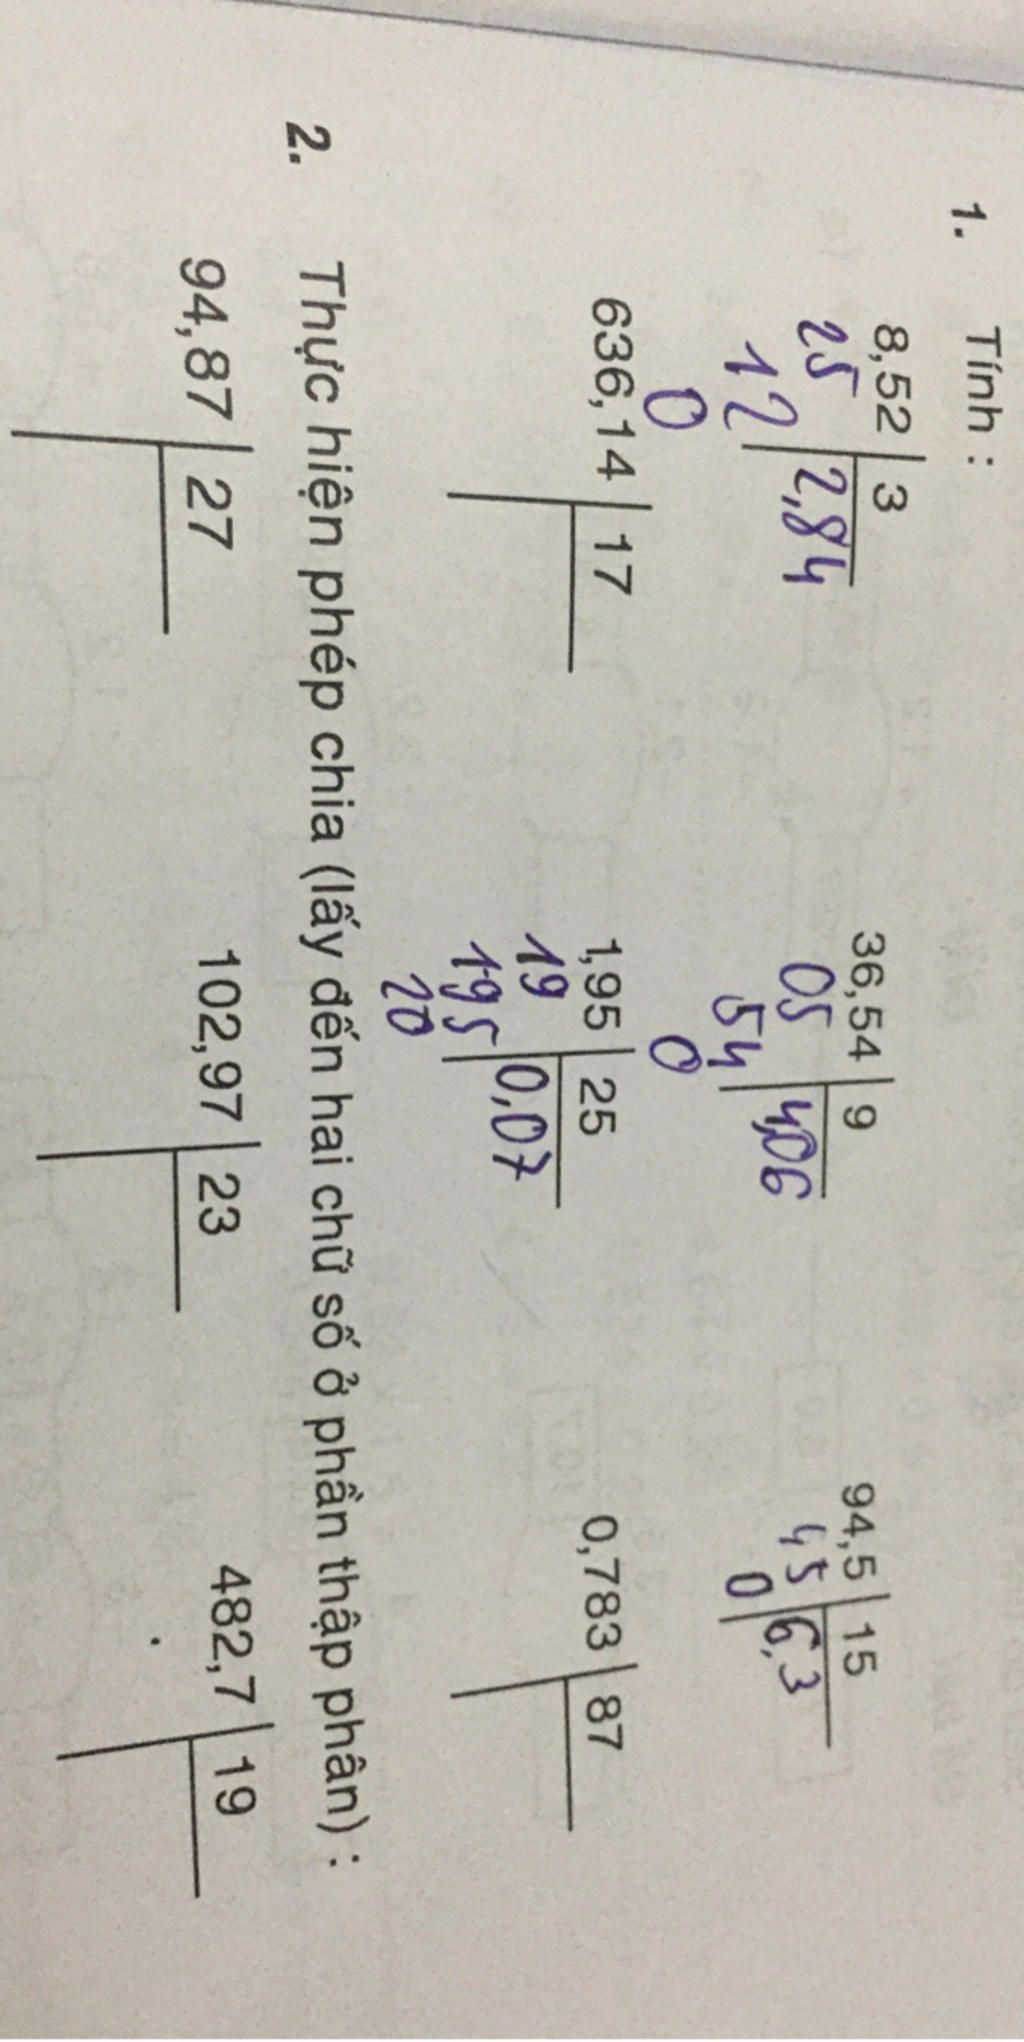 1. Tính :
8,52 3 36,54 9 94,5 15
25 2,84 05 4,06 45 6,3
12 54 0
0 0
636,14 17 1,95 25 0,783 87
19 0,07
195
20
2. Thực hiện phép chia (lấy đến hai chữ số ở phần thập phân) :
94,87 27 102,97 23 482,7 19